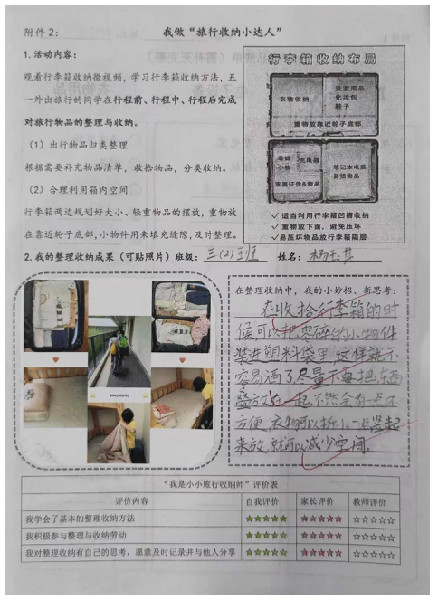 附件2：
我做“旅行收纳小达人”
1.活动内容：
观看行李箱收纳微视频，学习行李箱收纳方法、五
一外出旅行的同学在行程前、行程中、行程后完成
对旅行物品的整理与收纳。
（1）出行物品归类整理
根据需要补充物品清单，收拾物品，分类收纳。
（2）合理利用箱内空间
行李箱两边规划好大小、轻重物品的摆放，重物放
在靠近轮子底部，小物件用来填充缝隙，及时整理。
行李箱收纳布局
衣物收纳
鞋子
重物放靠近轮子底部
✓适当利用行李箱凹槽收纳
✓重物放下面，避免压坏
✓易压坏物品放行李箱隔层
2.我的整理收纳成果（可贴照片）班级：三(2)班 姓名：
在整理收纳中，我的小妙招、新思考：
在收拾行李箱的时
候可以把零碎的小物件
装进塑料袋里，这样就不
容易满了尽量不要把东西
叠放在一起不然会有一点不
方便，衣物可以折小一点叠起
来放，就可以减少空间。
“我是小小旅行收纳师”评价表
评价内容 自我评价 家长评价 教师评价
我学会了基本的整理收纳方法 ★★★★★ ★★★★★ ☆☆☆☆☆
我积极参与整理与收纳劳动 ★★★★★ ★★★★★ ☆☆☆☆☆
我对整理收纳有自己的思考，愿意及时记录并与他人分享 ★★★★★ ★★★★★ ☆☆☆☆☆